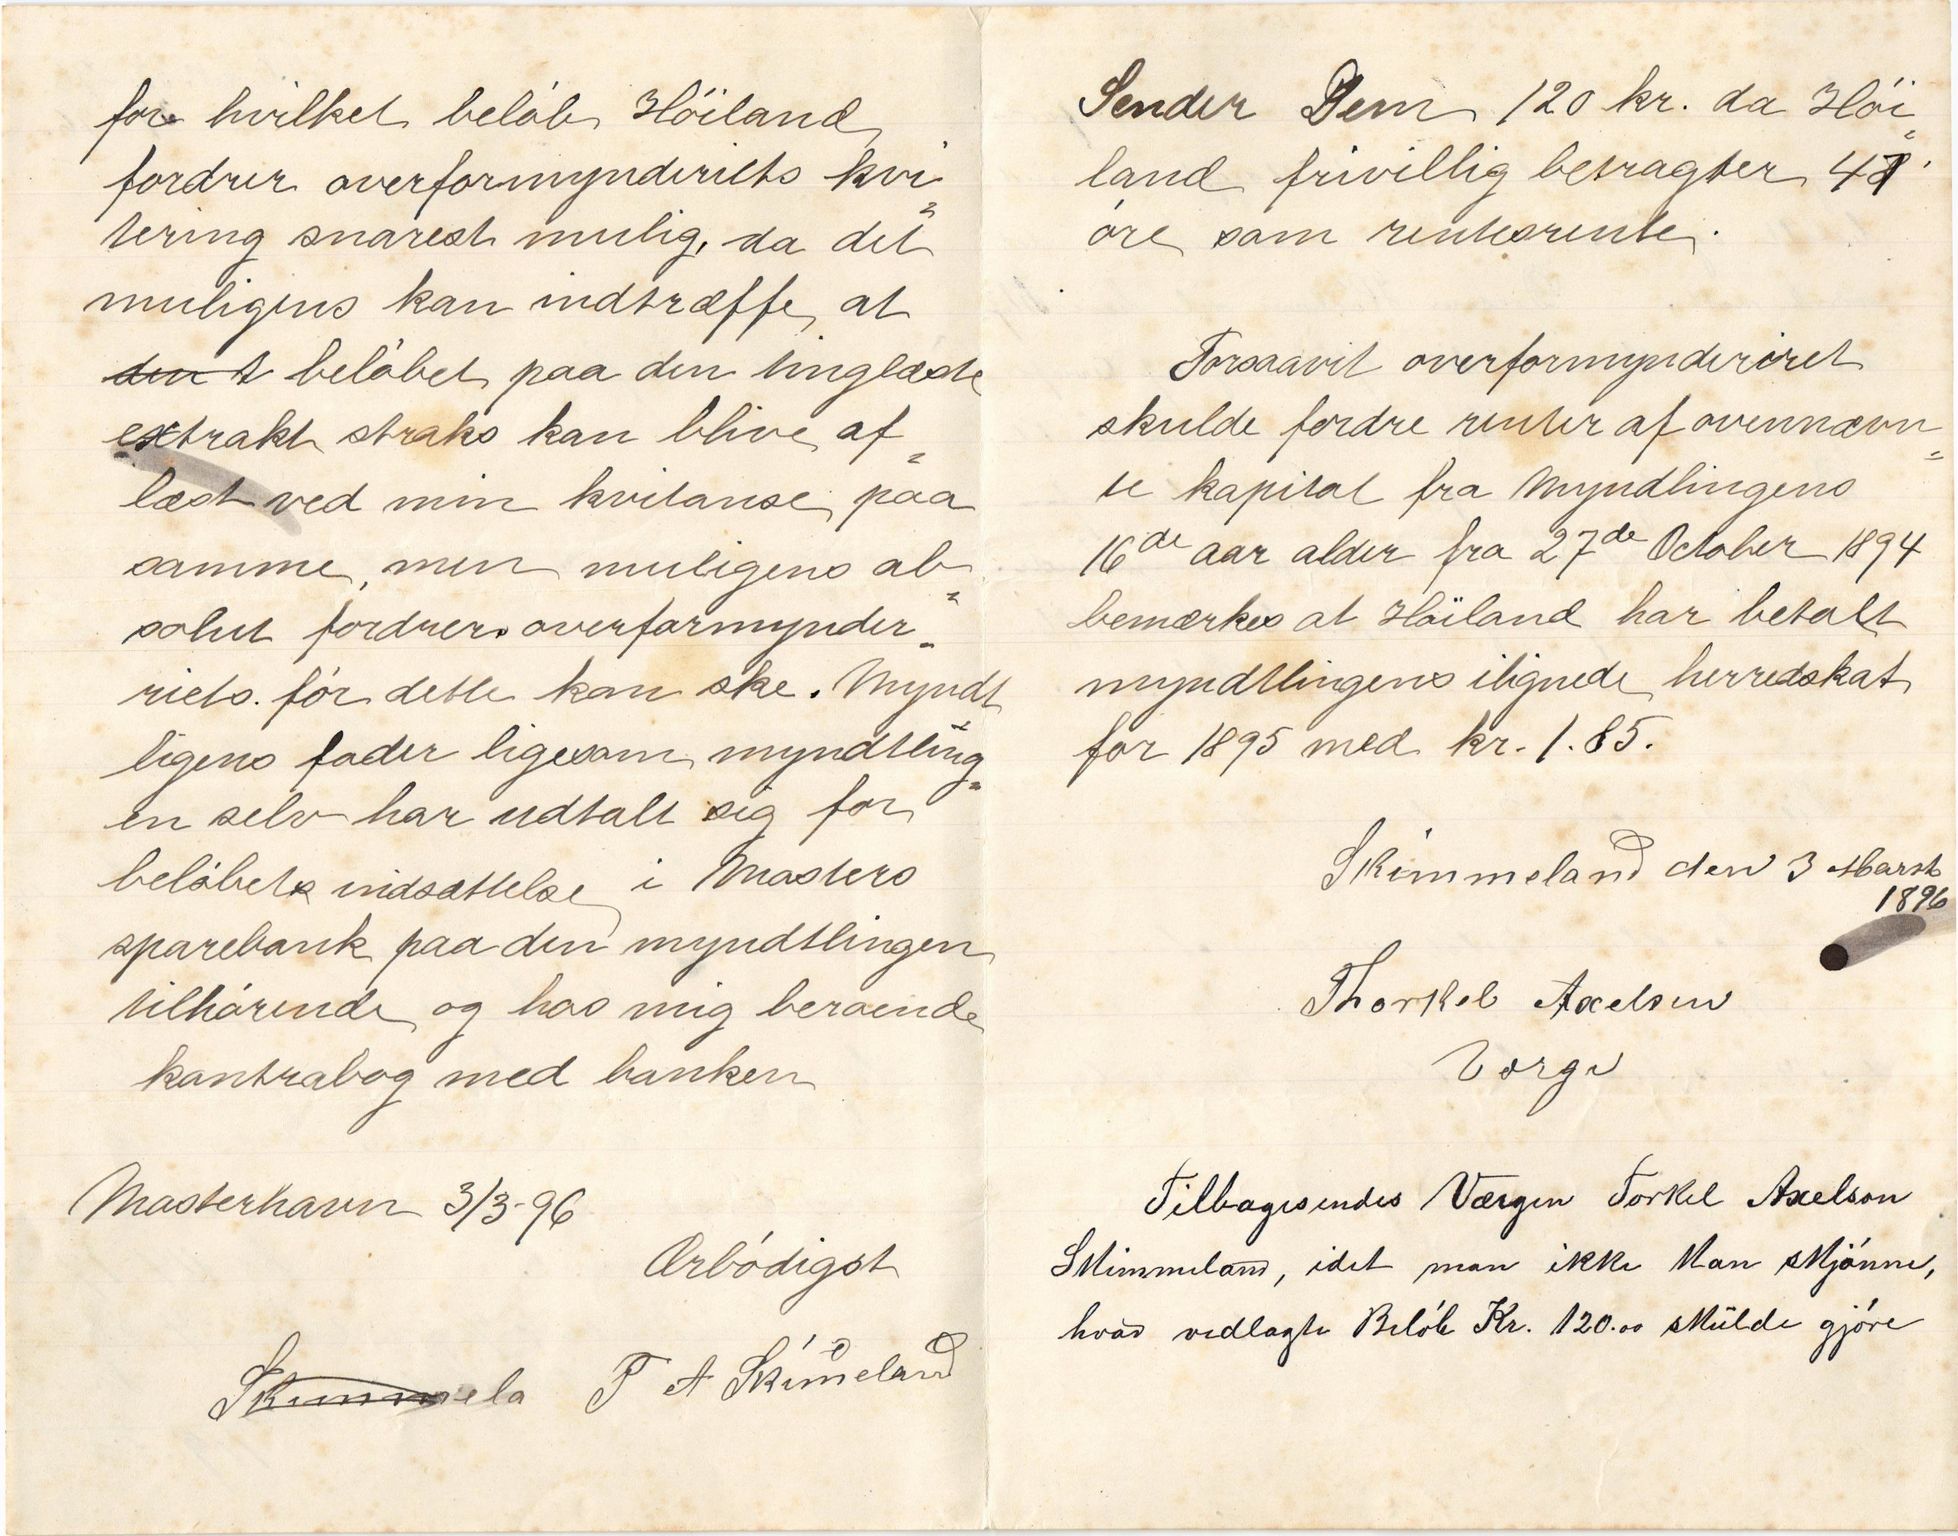 for hvilket beløb Høiland
fordrer overformynderiets kvi=
tering snarest mulig, da det
muligens kan indtræffe, at
den t beløbet paa den tinglæste
extrakt straks kan blive af=
læst ved min kvitanse paa
samme, men muligens ab=
solut fordrer overformynder=
riets. før dette kan ske. Myndt
ligens fader ligesom myndtling=
en selv har udtalt sig for
beløbets indsættelse i Mosters
sparebank paa den myndtlingen
tilhørende og hos mig beroende
kontrabog med banken
Mosterhavn 3/3-96
Ærbødigst
Skimmela T A Skim̄eland
Sender Dem 120 kr. da Høi=
land frivillig betragter 41
øre som rentesrente.
Forsaavit overformynderiret
skulde fordre renter af ovennævn=
te kapital fra Myndlingens
16de aar alder fra 27de October 1894
bemærkes at Høiland har betalt
myndtlingens ilignede herredskat
for 1895 med kr. 1.85.
Skimmeland den 3 Marst
1896
Thorkel Axelsen
Værge
Tilbagesendes Værgen Torkel Axelson
Skimmeland, idet man ikke kan skjønne,
hvad vedlagte Beløb Kr. 120.00 skulde gjøre